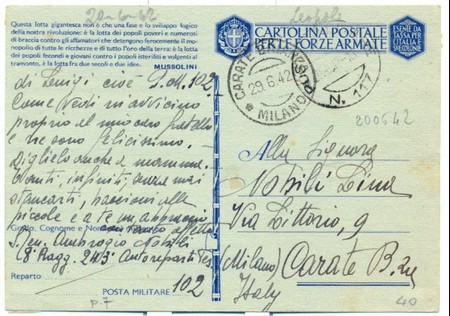 20-6-42
Leopoli
Questa lotta gigantesca non è che una fase e lo sviluppo logico
della nostra rivoluzione: è la lotta dei popoli poveri e numerosi
di braccia contro gli affamatori che detengono ferocemente il mo-
nopolio di tutte le ricchezze e di tutto l'oro della terra: è la lotta
dei popoli fecondi e giovani contro i popoli isteriliti e volgenti al
tramonto, è la lotta fra due secoli e due idee.
MUSSOLINI
CARTOLINA POSTALE
PER LE FORZE ARMATE
ESENTE DA
TASSA PER
L'ITALIA E
CARATE
29.6.42
MILANO
N. 117
200642
di Luigi cioè P.M. 102
Come vedi mi avvicino
proprio al mio caro fratello
e ne sono felicissimo.
Diglielo anche a mamma.
infiniti,
stancarti, baccioni alle
piccole e a te un
Grado, Cognome e Nome
S. Ten. Ambrogio Nobili
(8° Ragg. 243° Autoreparti
Reparto
POSTA MILITARE 102
p. 7
Alla Signora
Nobili Lina
Via Littorio, 9
(Milano) Carate B.za
Italy
40